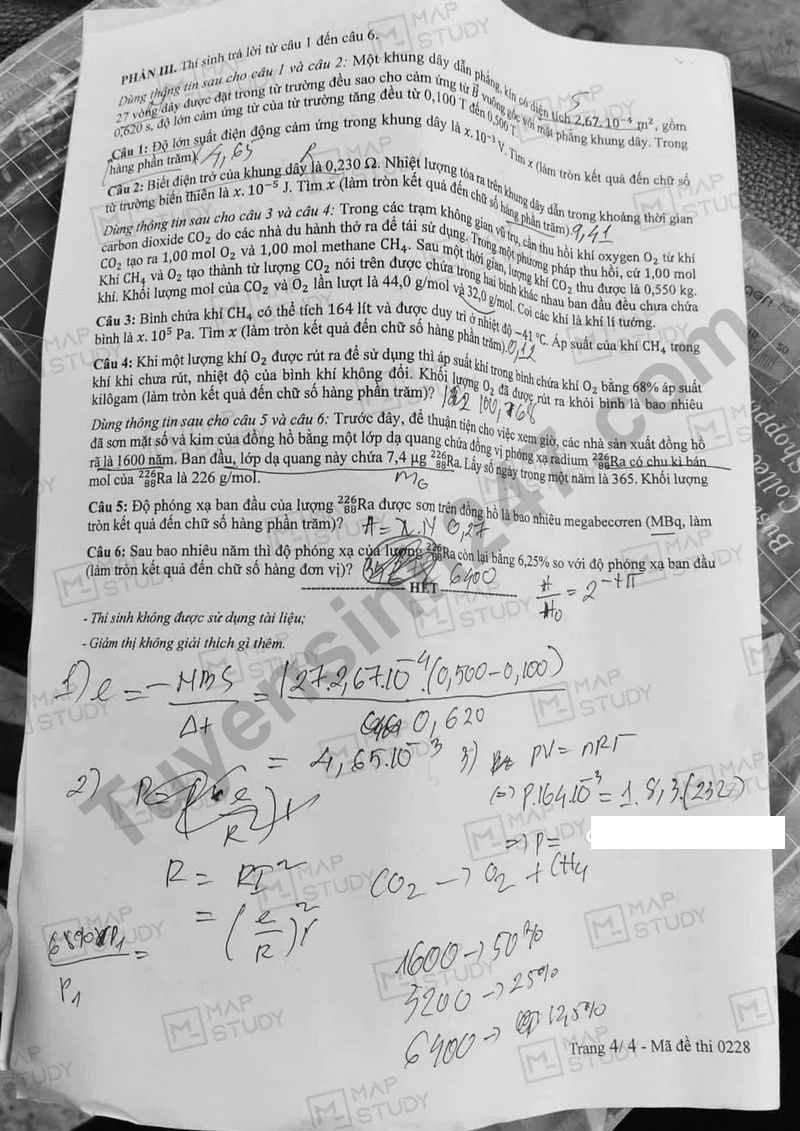 PHẦN III. Thí sinh trả lời từ câu 1 đến câu 6.
Dùng thông tin sau cho câu 1 và câu 2: Một khung dây dẫn phẳng, kín có diện tích 2,67.10⁻⁴ m², gồm
27 vòng dây được đặt trong từ trường đều sao cho cảm ứng từ B vuông góc với mặt phẳng khung dây. Trong
0,620 s, độ lớn cảm ứng từ của từ trường tăng đều từ 0,100 T đến 0,500 T.
Câu 1: Độ lớn suất điện động cảm ứng trong khung dây là x.10⁻³ V. Tìm x (làm tròn kết quả đến chữ số
hàng phần trăm). 4,65
Câu 2: Biết điện trở của khung dây là 0,230 Ω. Nhiệt lượng tỏa ra trên khung dây dẫn trong khoảng thời gian
từ trường biến thiên là x.10⁻⁵ J. Tìm x (làm tròn kết quả đến chữ số hàng phần trăm). 9,41
Dùng thông tin sau cho câu 3 và câu 4: Trong các trạm không gian vũ trụ, cần thu hồi khí oxygen O₂ từ khí
carbon dioxide CO₂ do các nhà du hành thở ra để tái sử dụng. Trong một phương pháp thu hồi, cứ 1,00 mol
CO₂ tạo ra 1,00 mol O₂ và 1,00 mol methane CH₄. Sau một thời gian, lượng khí CO₂ thu được là 0,550 kg.
Khí CH₄ và O₂ tạo thành từ lượng CO₂ nói trên được chứa trong hai bình khác nhau ban đầu đều chưa chứa
khí. Khối lượng mol của CO₂ và O₂ lần lượt là 44,0 g/mol và 32,0 g/mol. Coi các khí là khí lí tưởng.
Câu 3: Bình chứa khí CH₄ có thể tích 164 lít và được duy trì ở nhiệt độ −41 °C. Áp suất của khí CH₄ trong
bình là x.10⁵ Pa. Tìm x (làm tròn kết quả đến chữ số hàng phần trăm). 0,12
Câu 4: Khi một lượng khí O₂ được rút ra để sử dụng thì áp suất khí trong bình chứa khí O₂ bằng 68% áp suất
khí khi chưa rút, nhiệt độ của bình khí không đổi. Khối lượng O₂ đã được rút ra khỏi bình là bao nhiêu
kilôgam (làm tròn kết quả đến chữ số hàng phần trăm)?
Dùng thông tin sau cho câu 5 và câu 6: Trước đây, để thuận tiện cho việc xem giờ, các nhà sản xuất đồng hồ
đã sơn mặt số và kim của đồng hồ bằng một lớp dạ quang chứa đồng vị phóng xạ radium ²²⁶₈₈Ra có chu kì bán
rã là 1600 năm. Ban đầu, lớp dạ quang này chứa 7,4 μg ²²⁶₈₈Ra. Lấy số ngày trong một năm là 365. Khối lượng
mol của ²²⁶₈₈Ra là 226 g/mol.
m₀
Câu 5: Độ phóng xạ ban đầu của lượng ²²⁶₈₈Ra được sơn trên đồng hồ là bao nhiêu megabecơren (MBq, làm
tròn kết quả đến chữ số hàng phần trăm)? A = λ.N 0,27
Câu 6: Sau bao nhiêu năm thì độ phóng xạ của lượng ²²⁶₈₈Ra còn lại bằng 6,25% so với độ phóng xạ ban đầu
(làm tròn kết quả đến chữ số hàng đơn vị)? 6400
HẾT
A/A₀ = 2^(-t/T)
- Thí sinh không được sử dụng tài liệu;
- Giám thị không giải thích gì thêm.
1) e = −NBS/Δt = |27.2,67.10⁻⁴.(0,500−0,100)/0,620
= 4,65.10⁻³
3) PV = nRT
(=) P.164.10⁻³ = 1.8,3.(232)
=> P =
2)
R = RI²
= (e/R)²r
CO₂ → O₂ + CH₄
68%P₁/P₁ =
1600 → 50%
3200 → 25%
6400 → 12,5%
Trang 4/ 4 - Mã đề thi 0228
Tuyensinh247.com
MAP STUDY